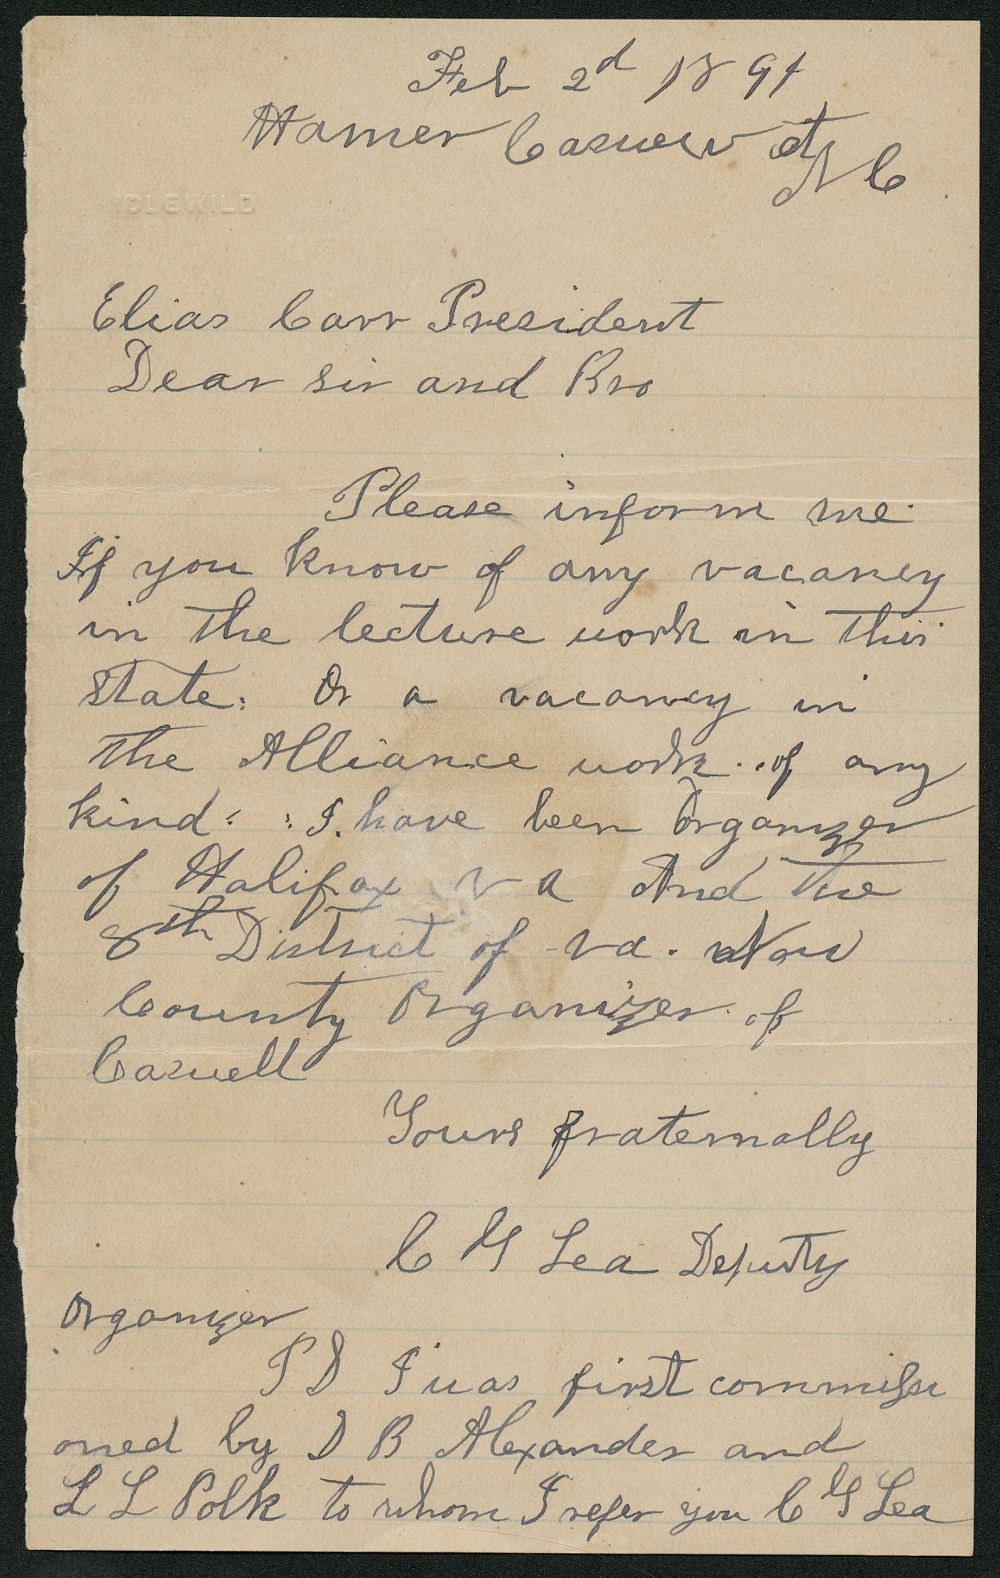 Feb 2d 1891
Hamer Caswell ct
N C
IDLEWILD
Elias Carr President
Dear sir and Bro
Please inform me
If you know of any vacancy
in the lecture work in this
state. Or a vacancy in
the Alliance work of any
kind. I have been Organizer
of Halifax Va And the
8th District of Va. Now
County Organizer of
Caswell
Yours fraternally
C G Lea Deputy
Organizer
P S I was first commissi
oned by S B Alexander and
L L Polk to whom I refer you C G Lea